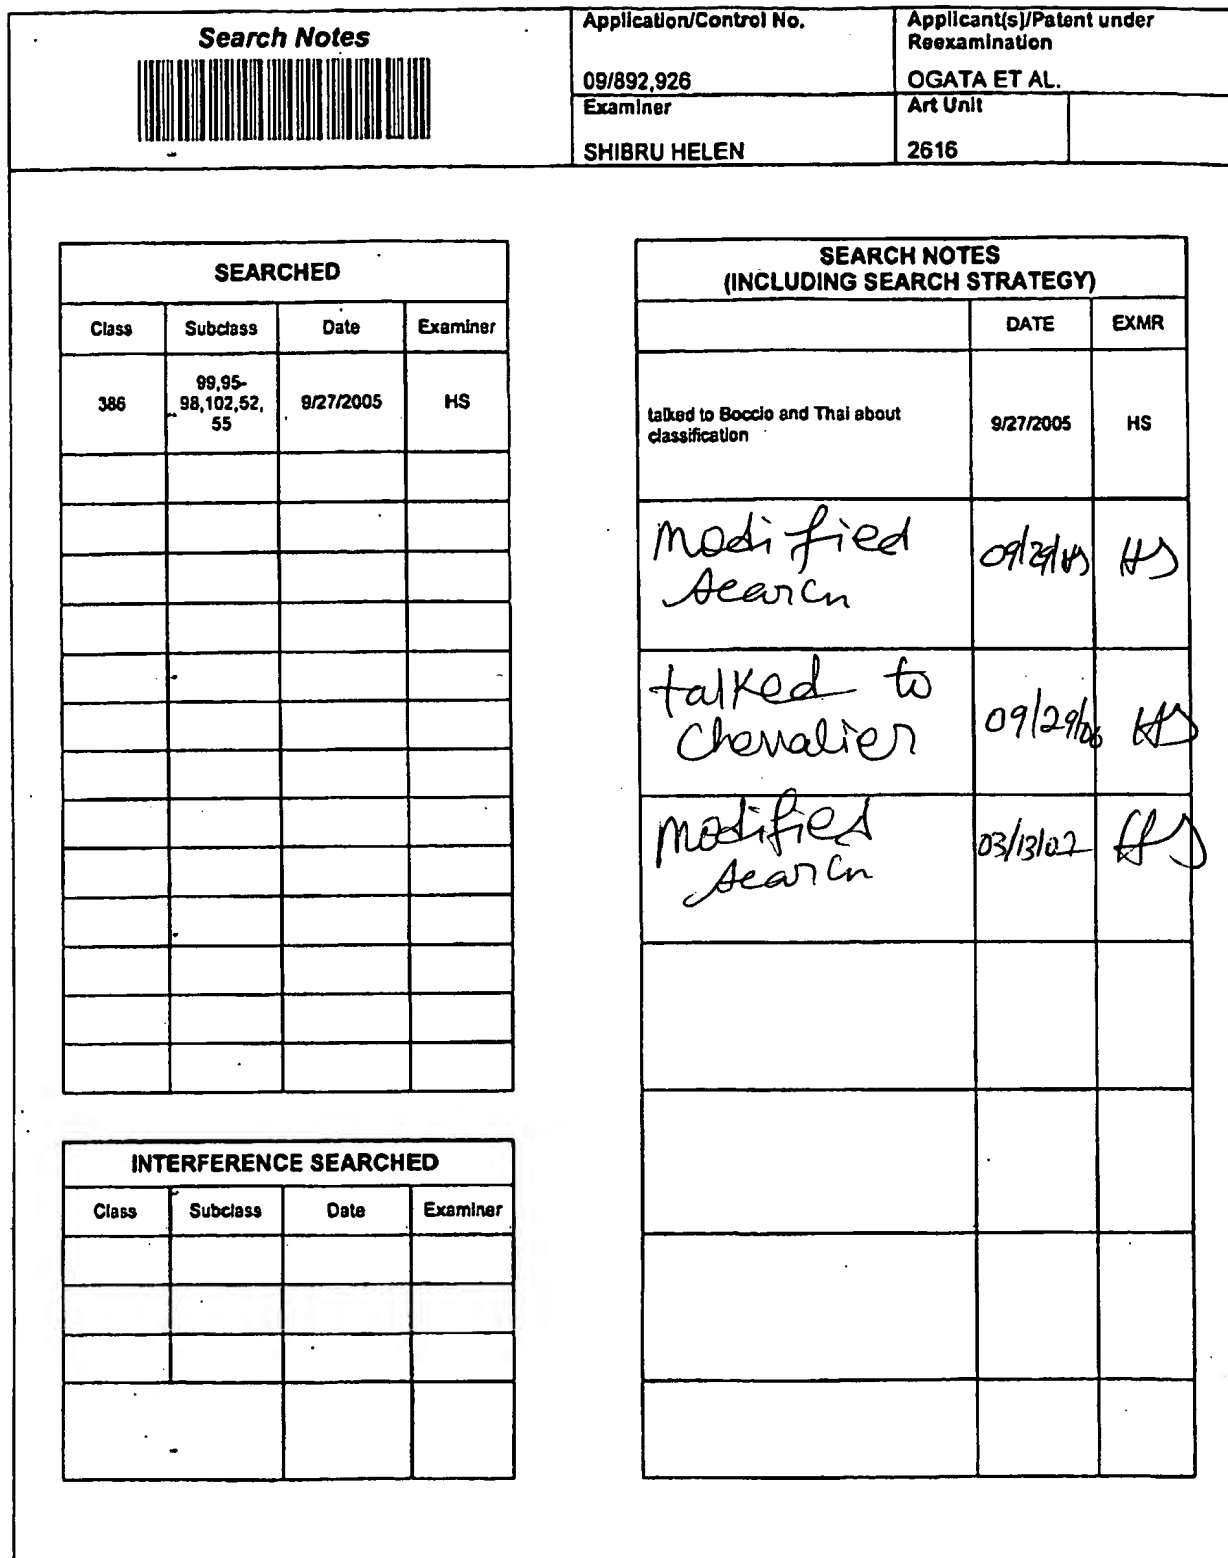 Search Notes
Application/Control No.
09/892,926
Applicant(s)/Patent under
Reexamination
OGATA ET AL.
Examiner
SHIBRU HELEN
Art Unit
2616
SEARCHED
Class Subclass Date Examiner
386 99,95-
98,102,52,
55 9/27/2005 HS
INTERFERENCE SEARCHED
Class Subclass Date Examiner
SEARCH NOTES
(INCLUDING SEARCH STRATEGY)
DATE EXMR
talked to Boccio and Thai about
classification 9/27/2005 HS
Modified
search HS
talked to
Chevalier 09/29/06 HS
Modified
search 03/13/07 HS